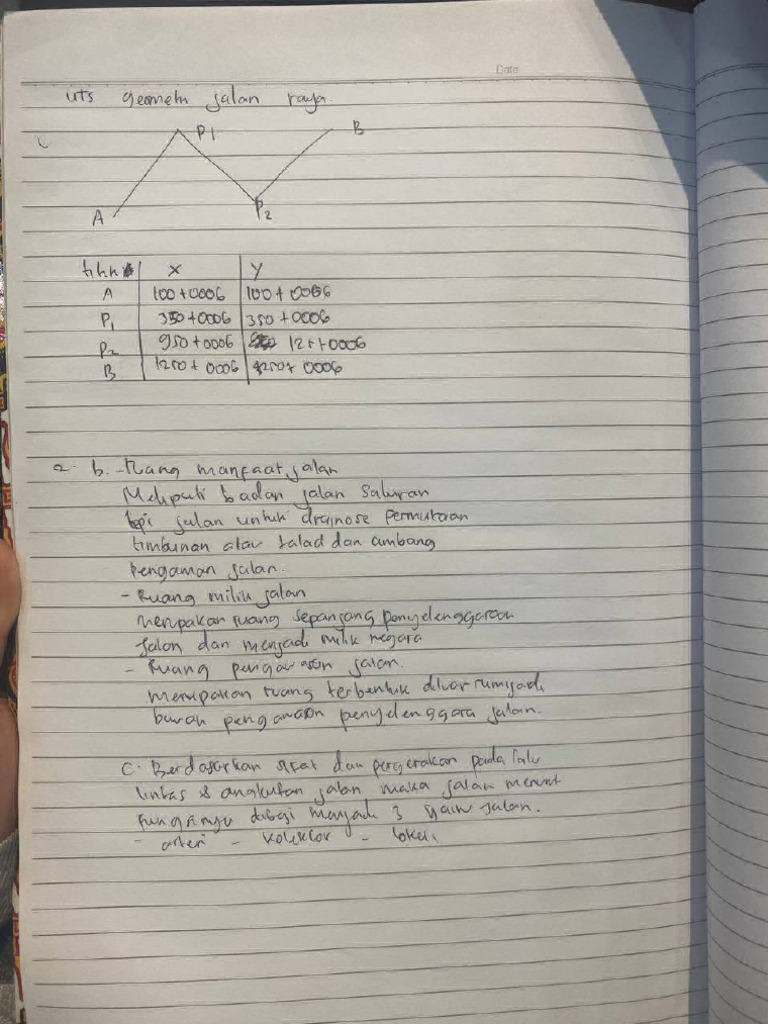 Date
UTS geometri jalan raya.
P1 B
A P2
titik X Y
A 100+0006 100+0006
P1 350+0006 350+0006
P2 950+0006 125+0006
B 1250+0006 1250+0006
2. b. - Ruang manfaat jalan
Meliputi badan jalan saluran
tepi jalan untuk drainase permukaan
timbunan atau galad dan ambang
pengaman jalan.
- Ruang milik jalan
merupakan ruang sepanjang penyelenggaraan
jalan dan menjadi milik negara
- Ruang pengawasan jalan.
merupakan ruang terbentuk diluar rumijadi
pengawasan penyelenggara jalan.
c. Berdasarkan sifat dan pergerakan pada lalu
lintas & angkutan jalan maka jalan menurut
fungsinya dibagi menjadi 3 yaitu jalan.
- arteri - kolektor - lokal